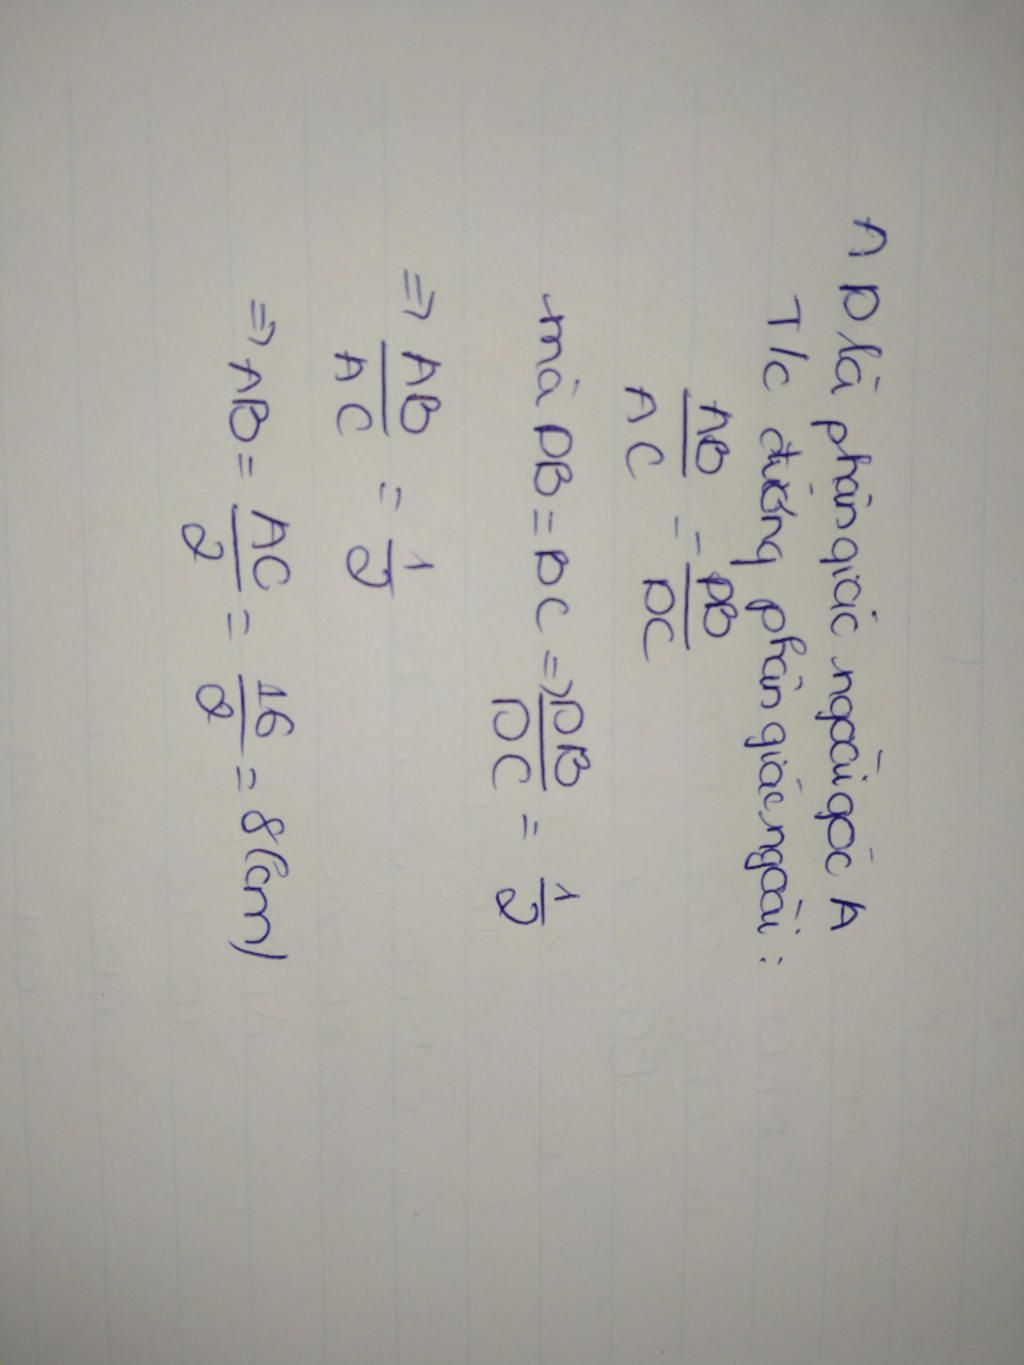 AD là phân giác ngoài góc A
T/c đường phân giác ngoài:
AB/AC = DB/DC
mà DB = DC => DB/DC = 1/2
=> AB/AC = 1/2
=> AB = AC/2 = 16/2 = 8(cm)